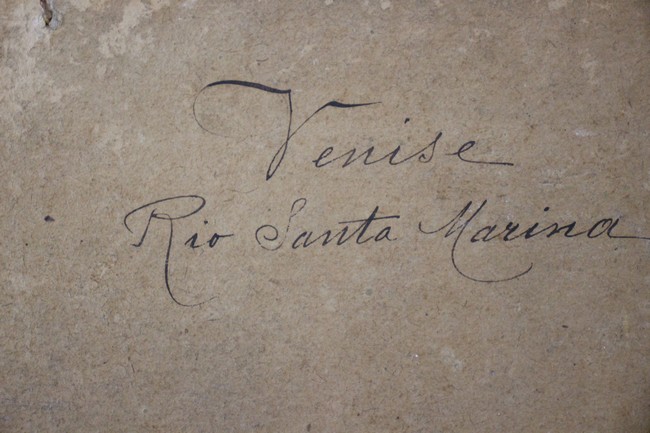 Venise
Rio Santa Marina